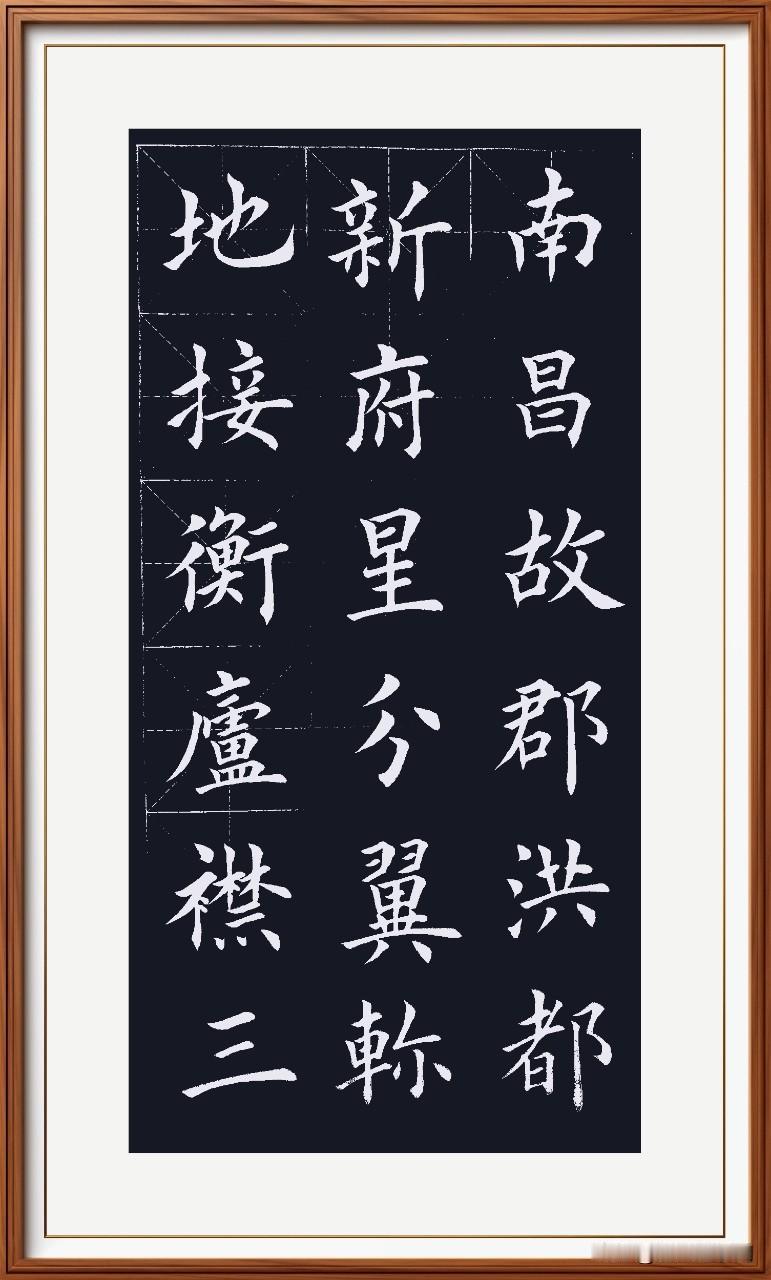 南昌故郡洪都
新府星分翼軫
地接衡廬襟三